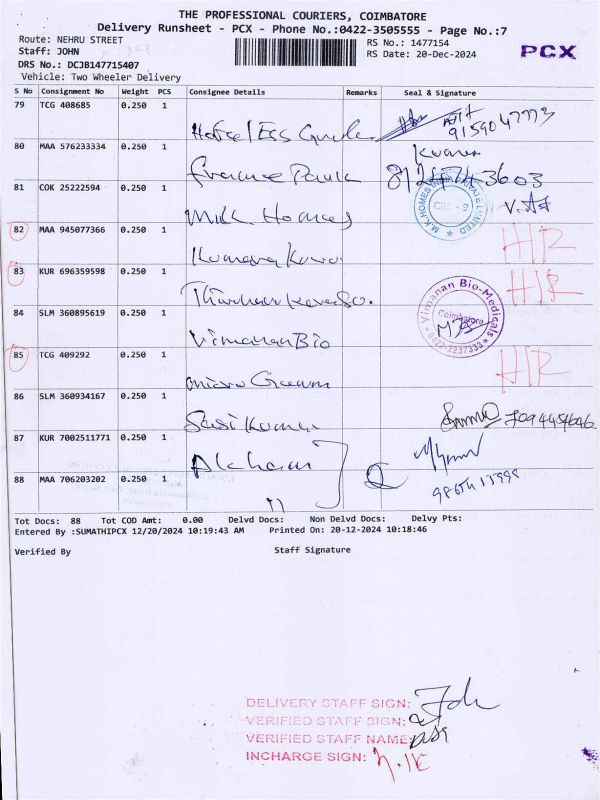 THE PROFESSIONAL COURIERS, COIMBATORE
Delivery Runsheet - PCX - Phone No.:0422-3505555 - Page No.:7
Route: NEHRU STREET
RS No.: 1477154
Staff: JOHN
RS Date: 20-Dec-2024
PCX
DRS No.: DCJB147715407
Vehicle: Two Wheeler Delivery
S No Consignment No Weight PCS Consignee Details Remarks Seal & Signature
79 TCG 408685 0.250 1
9159047773
80 MAA 576233334 0.250 1
Kumar
81 COK 25222594 0.250 1
M.K. HOMES PRIVATE LIMITED
CBE - 9
M.K Homes
82 MAA 945077366 0.250 1
H/R
83 KUR 696359598 0.250 1
H/R
84 SLM 360895619 0.250 1
Yimanan Bio-Medicals
Coimbatore
0422-2237333
Yimanan Bio
85 TCG 409292 0.250 1
H/R
86 SLM 360934167 0.250 1
Sasi Kumar
7094454646
87 KUR 7002511771 0.250 1
88 MAA 706203202 0.250 1
"
Tot Docs: 88 Tot COD Amt: 0.00 Delvd Docs: Non Delvd Docs: Delvy Pts:
Entered By :SUMATHIPCX 12/20/2024 10:19:43 AM Printed On: 20-12-2024 10:18:46
Verified By Staff Signature
DELIVERY STAFF SIGN:
VERIFIED STAFF SIGN:
VERIFIED STAFF NAME:
INCHARGE SIGN: